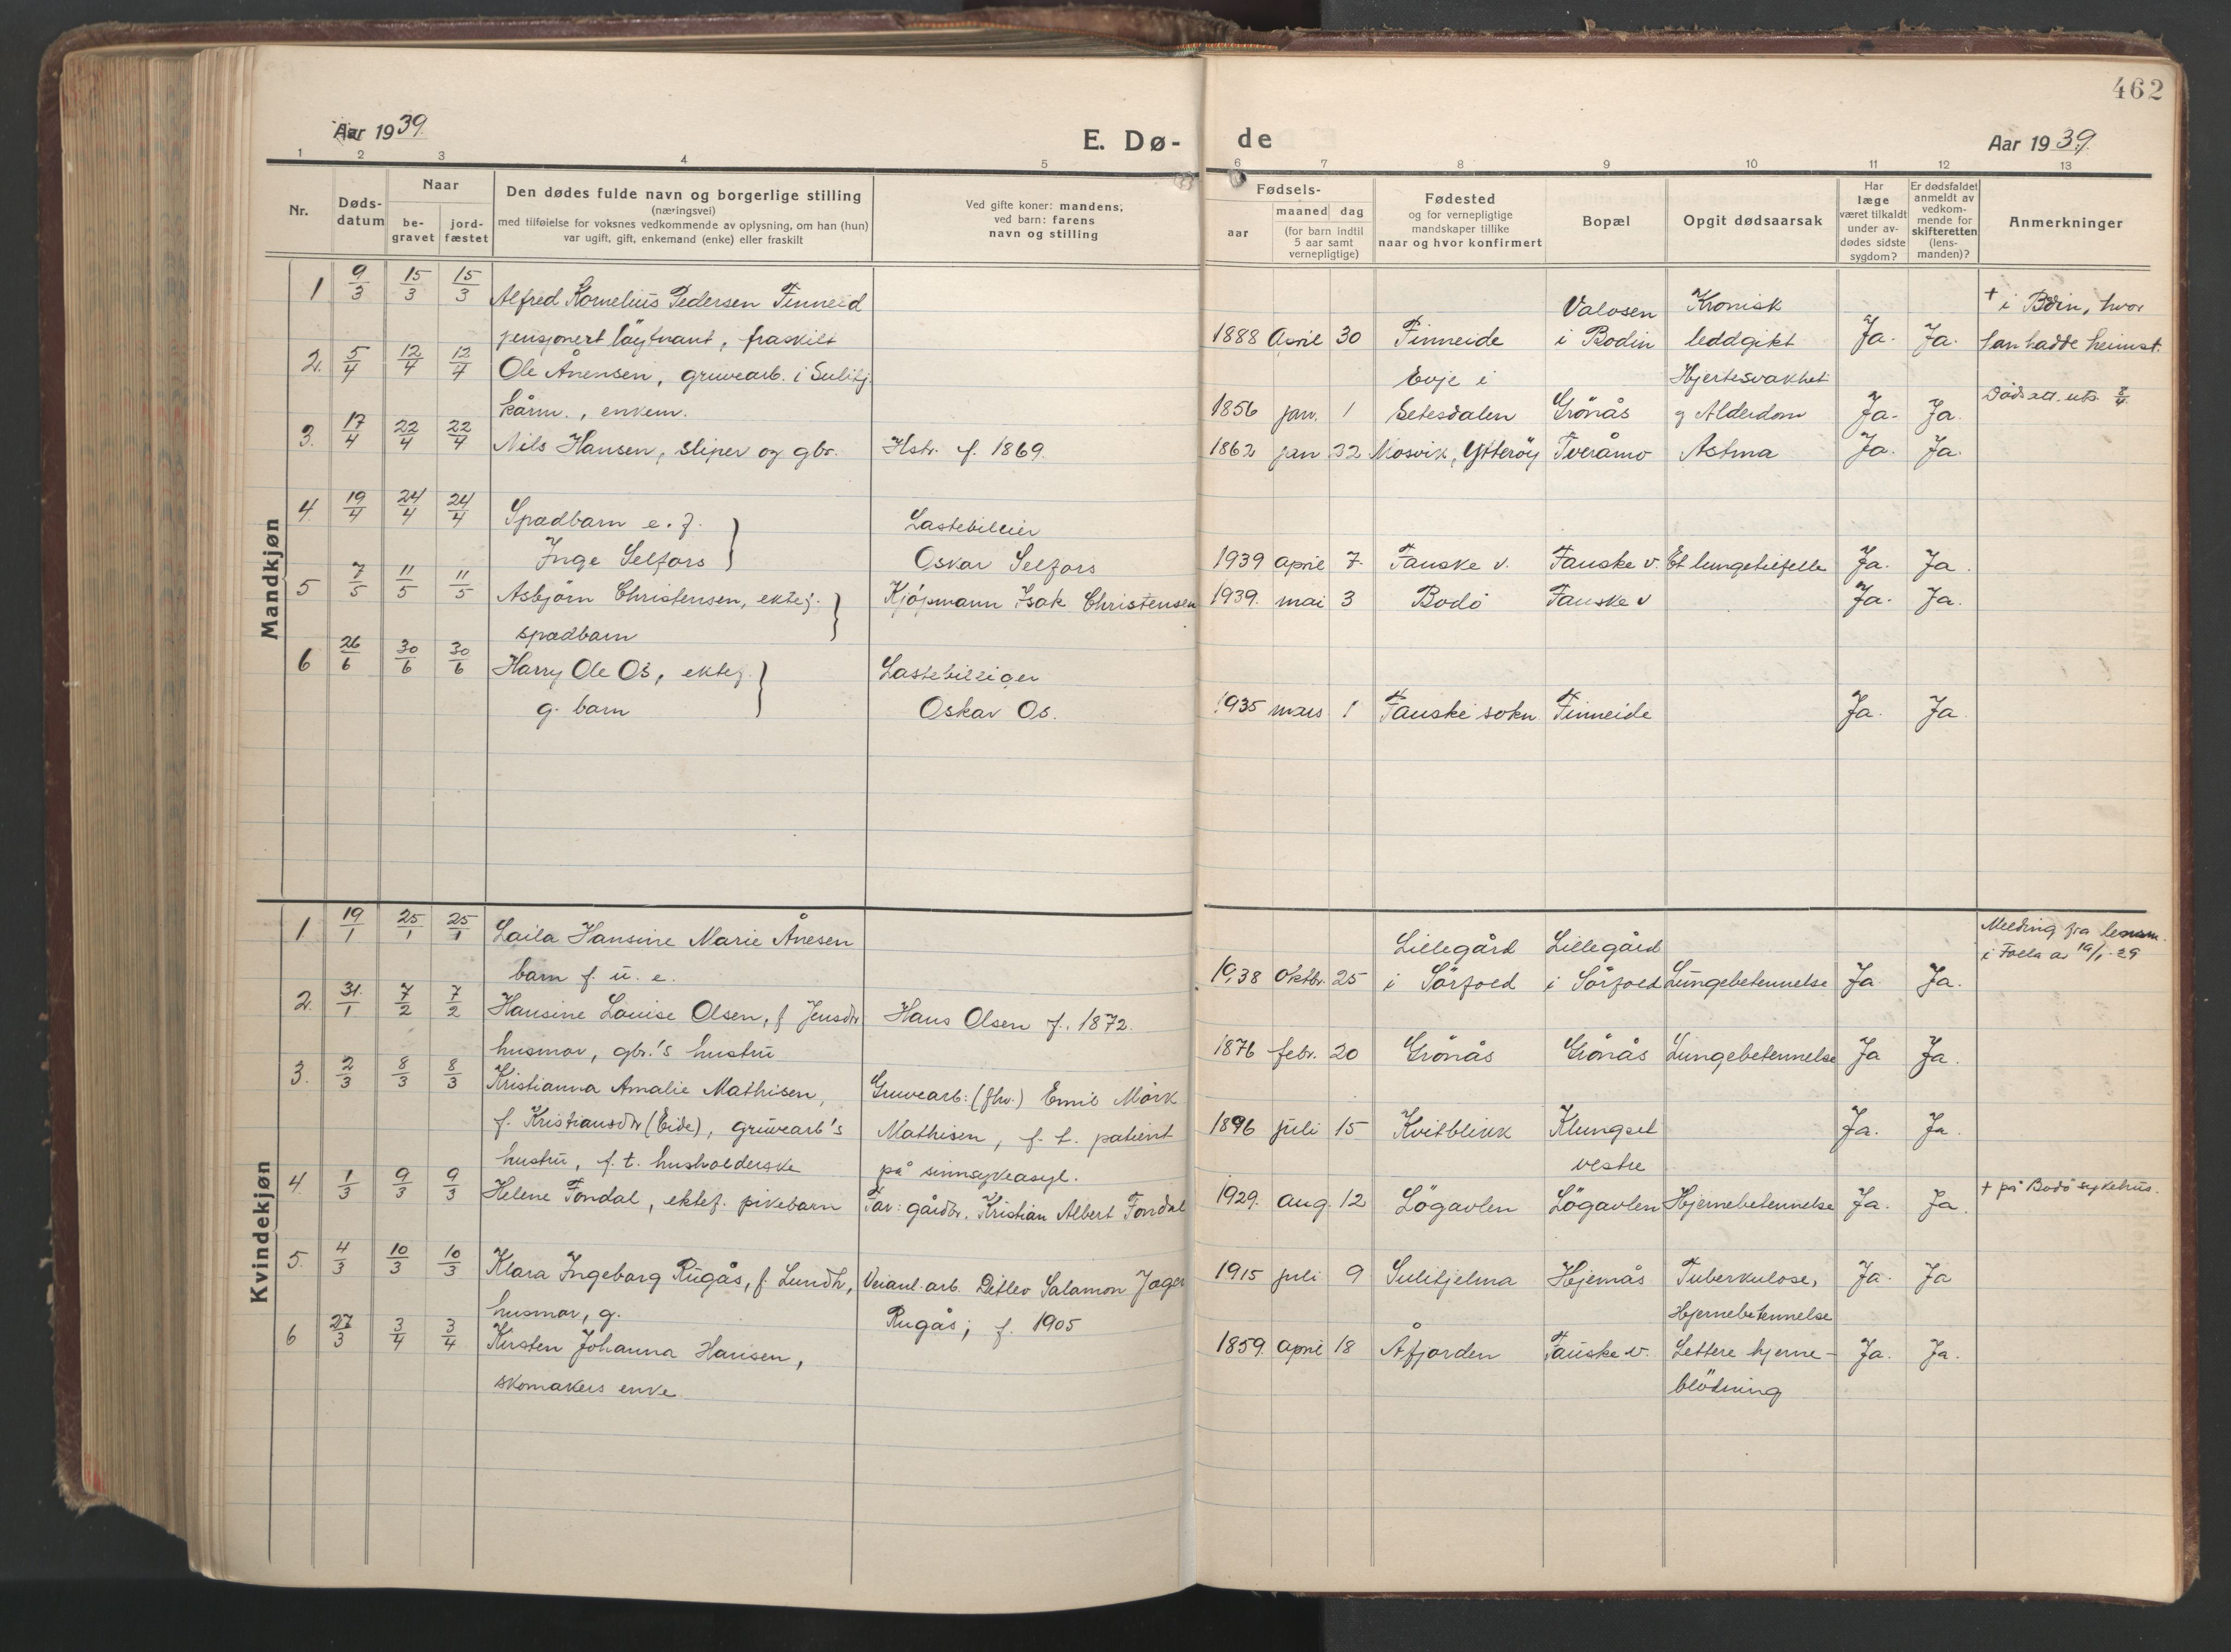 462
Aar 1939.
E. Dø-
de
Aar 1939.
1 2 3 4 5 6 7 8 9 10 11 12 13
Nr.
Døds-
datum
Naar
be-
gravet
jord-
fæstet
Den dødes fulde navn og borgerlige stilling
(næringsvei)
med tilføielse for voksnes vedkommende av oplysning, om han (hun)
var ugift, gift, enkemand (enke) eller fraskilt
Ved gifte koner: mandens,
ved barn: farens
navn og stilling
Fødsels-
aar
maaned dag
(for barn indtil
5 aar samt
vernepligtige)
Fødested
og for vernepligtige
mandskaper tillike
naar og hvor konfirmert
Bopæl
Opgit dødsaarsak
Har
læge
været tilkaldt
under av-
dødes sidste
sygdom?
Er dødsfaldet
anmeldt av
vedkom-
mende for
skifteretten
(lens-
manden)?
Anmerkninger
Mandkjøn
1 9/3 15/3 15/3 Alfred Kornelius Pedersen Finneid Valosen Kronisk + i Bodin, hvor
pensjonert løytnant, fraskilt 1888 April 30 Finneide i Bodin leddgikt Ja. Ja. han hadde heimst.
2. 5/4 12/4 12/4 Ole Ånensen, gruvearb. i Sulitj. Evje i Hjertesvakhet
kårm., enkem. 1856 jan. 1 Setesdalen Grönås g Alderdom Ja. Ja. Dödsatt. uts. 8/4
3. 17/4 22/4 22/4 Nils Hansen, sliper og gbr. Hstr. f. 1869. 1862 jan 22 Mosvik, Ytteröy Tveråmo Astma Ja. Ja.
4. 19/4 24/4 24/4 Spædbarn e. f. Lastebileier
Inge Selfors Oskar Selfors 1939 april 7. Fauske v. Fauske v. Et lungetilfelle Ja. Ja.
5 7/5 11/5 11/5 Asbjörn Christensen, ektef. Kjöpmann Isak Christensen 1939. mai 3 Bodö Fauske v Ja. Ja.
spædbarn
6 26/6 30/6 30/6 Harry Ole Os, ektef. Lastebileiger
g. barn Oskar Os. 1935 mars 1 Fauske sokn Finneide Ja. Ja
Kvindekjøn
1 19/1 25/1 25/1 Laila Hansine Marie Ånesen Lillegård Lillegård Melding fra lensm.
barn f. u. e. 1938 oktbr. 25 i Sörfold i Sörfold Lungebetennelse Ja Ja. i Folla av 19/1-39
2. 31./1 7/2 7/2 Hansine Louise Olsen, f Jensdtr Hans Olsen f. 1872.
husmor, gbr.'s hustru 1876 febr. 20 Grönås Grönås Lungebetennelse Ja Ja.
3. 2/3 8/3 8/3 Kristianna Amalie Mathisen, Gruvearb: (fhv.) Emil Mörk
f. Kristiansdtr (Eide), gruvearb's Mathisen, f. t. patient 1896 juli 15 Kvitblikk Klungset Ja. Ja.
hustru, f. t. husholderske på sinnsykeasyl. vestre
4. 1/3 9/3 9/3 Helene Fondal, ektef. pikebarn Far: gårdbr. Kristian Albert Fondal 1929. aug. 12 Lögavlen Lögavlen Hjernebetennelse Ja. Ja. + på Bodö sykehus.
5. 4/3 10/3 10/3 Klara Ingeborg Rugås, f. Lundh, Veianl.arb. Detlev Salamon Jager 1915 juli 9 Sulitjelma Hjemås Tuberkulose, Ja. Ja
husmor, g. Rugås, f. 1905 Hjernebetennelse
6 27/3 3/4 3/4 Kirsten Johanna Hansen, 1859. april 18 Åfjorden Fauske v. Lettere hjerne- Ja. Ja.
skomakers enke. blödning